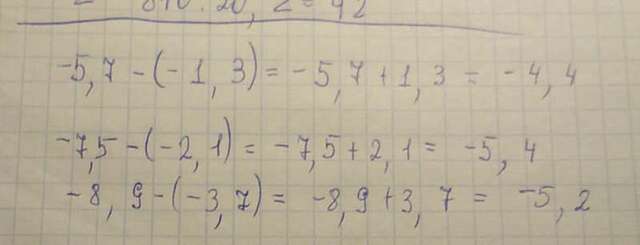 -5,7 - (-1,3) = -5,7 + 1,3 = -4,4
-7,5 - (-2,1) = -7,5 + 2,1 = -5,4
-8,9 - (-3,7) = -8,9 + 3,7 = -5,2